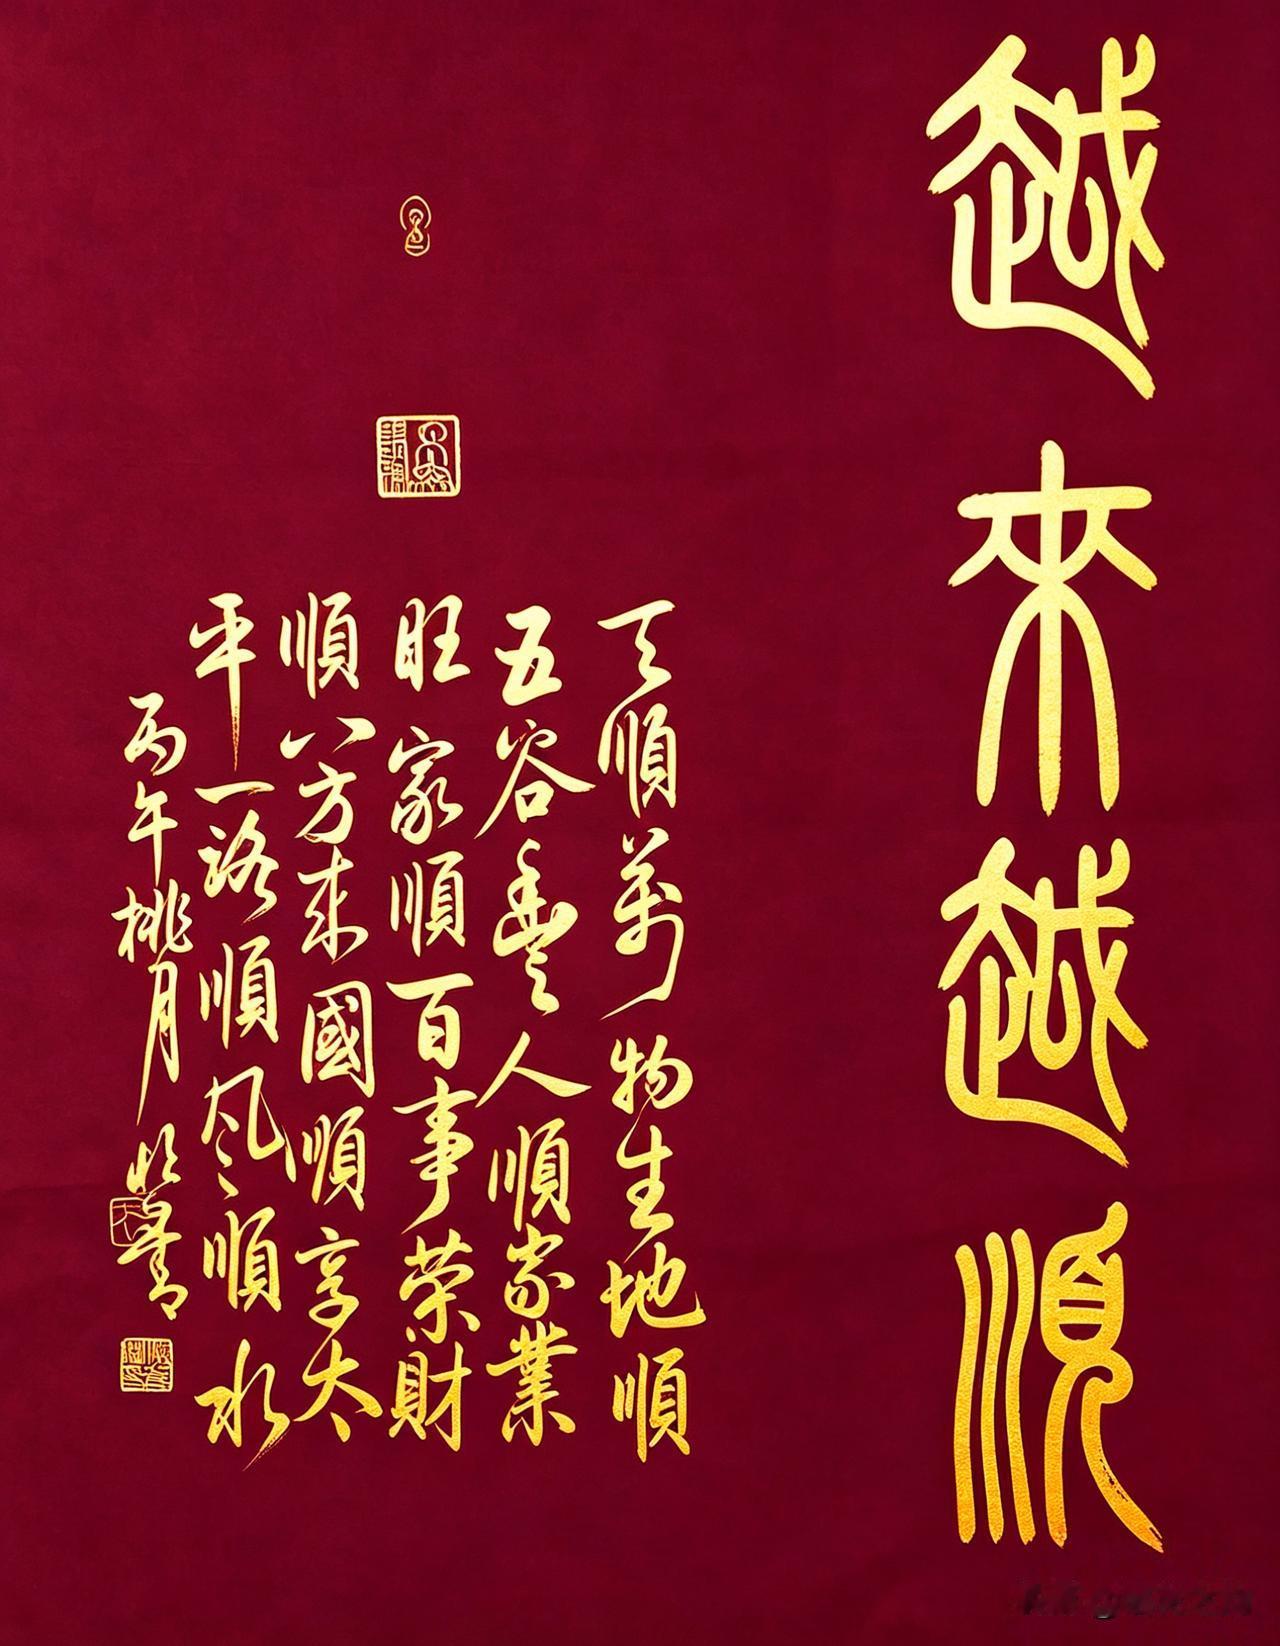 越來越順
天順萬物生地順
五谷豐人順家業
旺家順百事榮財
順八方來國順享太
平一路順风順水
丙午桃月